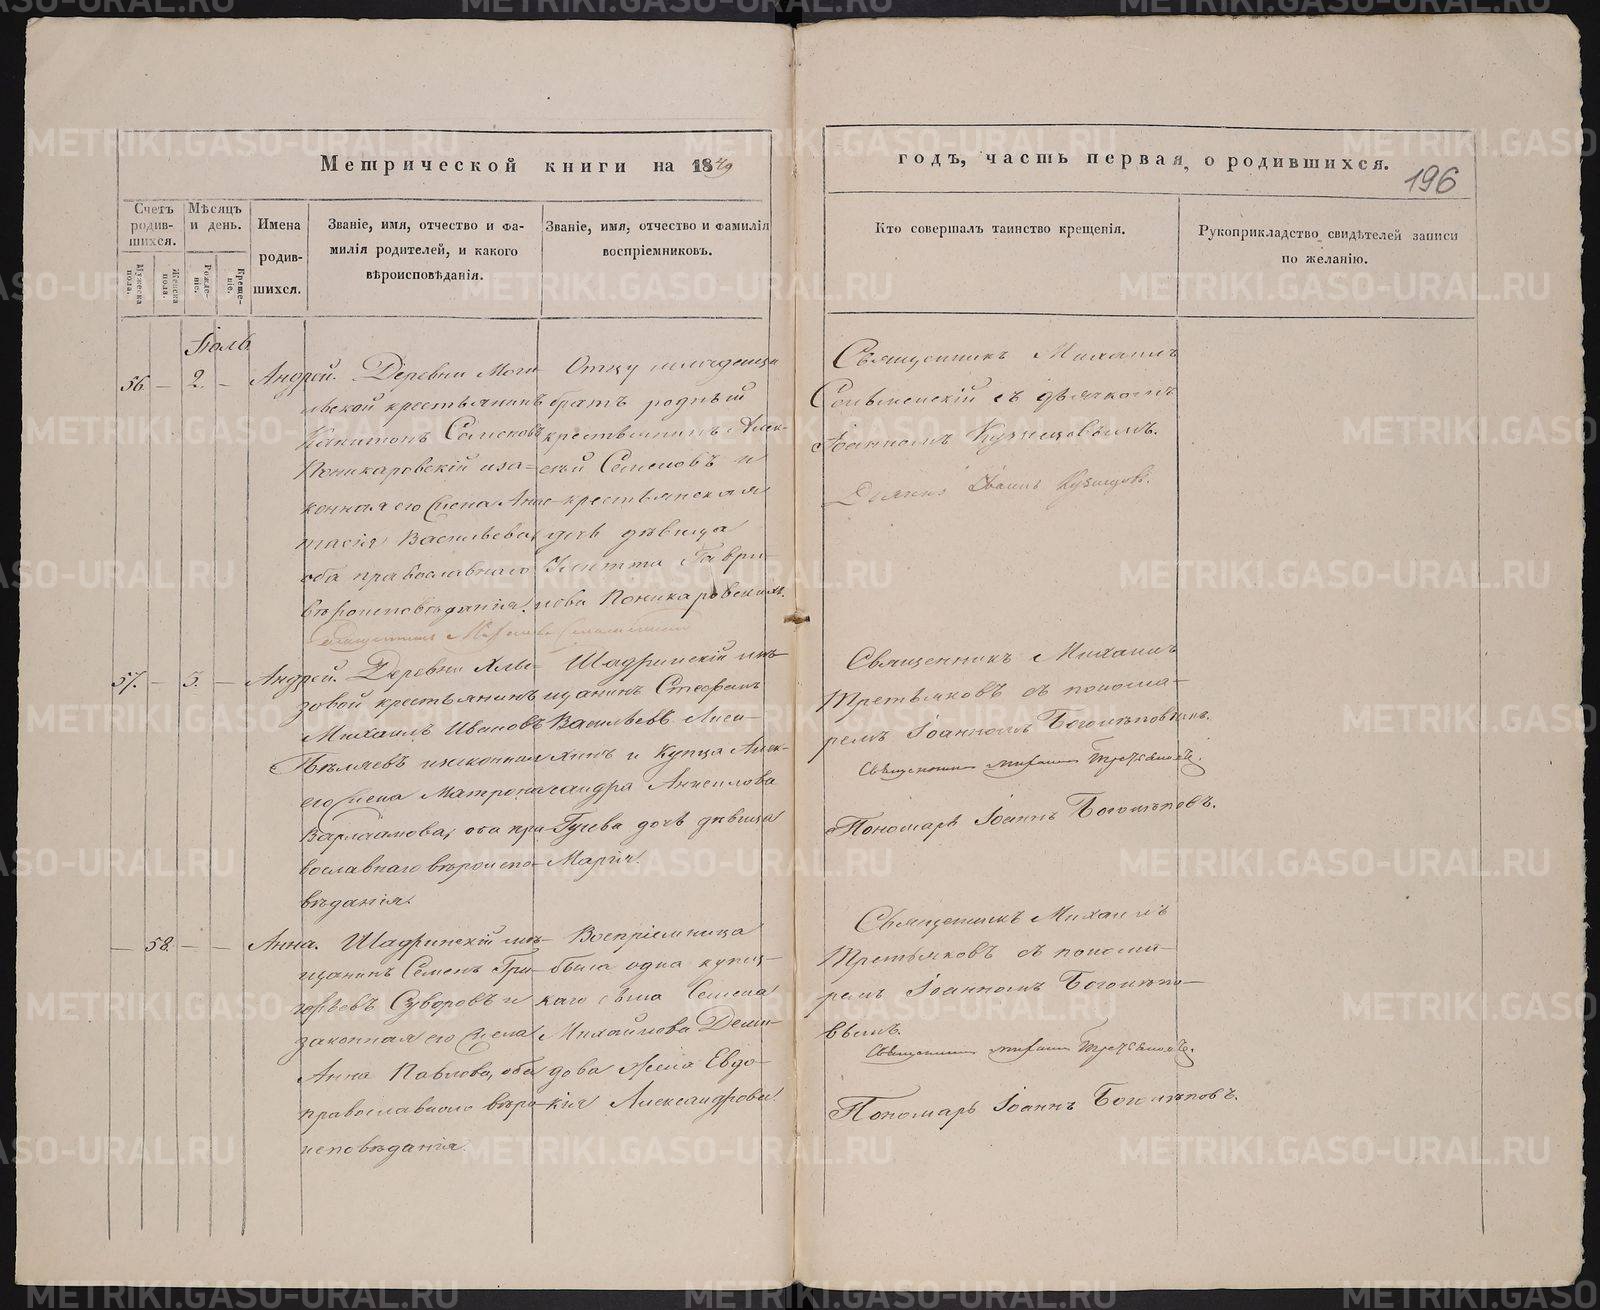 Метрической книги на 1849
годъ, часть первая, о родившихся.
196
Счетъ родив-шихся.
Мужеска пола.
Женска пола.
Мѣсяцъ и день.
Рожде-ніе.
Креще-ніе.
Имена
родив-
шихся.
Званіе, имя, отчество и фа-
милія родителей, и какого
вѣроисповѣданія.
Званіе, имя, отчество и фамилія
воспріемниковъ.
Кто совершалъ таинство крещенія.
Рукоприкладство свидѣтелей записи
по желанію.
Іюль
56 — 2. — Андрей.
Деревни Моги-
льской крестьянинъ
Капитонъ Семеновъ
Поникаровскій и за-
конная его жена Анас-
тасія Васильева, оба православнаго
вѣроисповѣданія.
Отцу младенца
братъ родный
крестьянинъ Алек-
сѣй Семеновъ и
крестьянская
дочь дѣвица
Гаври-
лова Поникаровскихъ.
Священникъ Михаилъ
съ дьячкомъ
Іоанномъ Кузнецовымъ.
Дьячекъ Іоаннъ Кузнецовъ.
Священникъ Михаилъ
57. — 5. — Андрей.
Деревни Хлы-
зовой крестьянинъ
Михаилъ Ивановъ
Бѣляевъ и законная
его жена Матрона
Варлаамова, оба пра-
вославнаго вѣроиспо-
вѣданія.
Шадринскій мѣ-
щанинъ Стефанъ
Васильевъ
и купца Алек-
сандра
дочь дѣвица
Марія.
Священникъ Михаилъ
Третьяковъ съ понома-
ремъ Іоанномъ Боголѣповымъ.
Священникъ Михаилъ Третьяковъ.
Пономарь Іоаннъ Боголѣповъ.
— 58 — — Анна.
Шадринскій мѣ-
щанинъ Семенъ Гри-
горьевъ Суворовъ и
законная его жена
Анна Павлова, оба
православнаго вѣро-
исповѣданія.
Воспріемница
была одна купец-
каго сына Семена
Михайлова Деми-
дова жена Евдо-
кія Александрова.
Священникъ Михаилъ
Третьяковъ съ понома-
ремъ Іоанномъ Боголѣпо-
вымъ.
Священникъ Михаилъ Третьяковъ.
Пономарь Іоаннъ Боголѣповъ.
METRIKI.GASO-URAL.RU